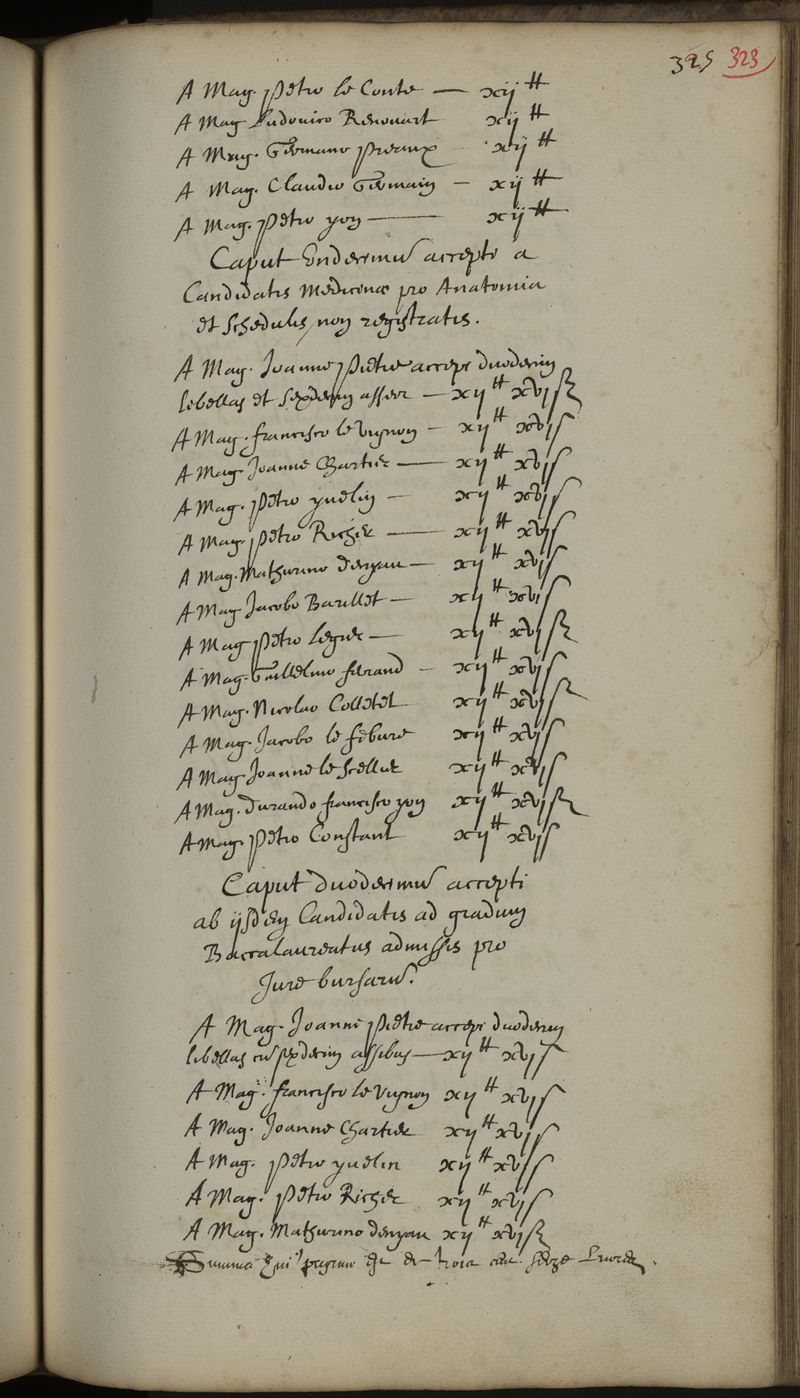 325 323
A Mag. Petro le Conte — xij ₶
A Mag. Ludovico Renouart xij ₶
A Mag. Germano preaux xij ₶
A Mag. Claudio Germain — xij ₶
A Mag. Petro yon — xij ₶
Caput Undecimū accepti a
Candidatis Medicinæ pro Anatomia
et schedulis non registratis.
A Mag. Joanne Pietre accepi duodecim
libellas et sexdecim asses — xij ₶ xvj ſ
A Mag. francisco le Vignon — xij ₶ xvj ſ
A Mag. Joanne Chartier — xij ₶ xvj ſ
A Mag. Petro yuelin — xij ₶ xvj ſ
A Mag. Petro Richer — xij ₶ xvj ſ
A Mag. Mathurino Denyau — xij ₶ xvj ſ
A Mag. Jacobo Barillet — xij ₶ xvj ſ
A Mag. Petro Legier — xij ₶ xvj ſ
A Mag. Guillelmo ferand — xij ₶ xvj ſ
A Mag. Nicolao Colletet xij ₶ xvj ſ
A Mag. Jacobo le febure xij ₶ xvj ſ
A Mag. Joanne le Scellier xij ₶ xvj ſ
A Mag. Durando francisco yon xij ₶ xvj ſ
A Mag. Petro Constant xij ₶ xvj ſ
Caput duodecimū accepti
ab ijsdem Candidatis ad gradum
Baccalaureatus admissis pro
Jure bursarū.
A Mag. Joanne Pietre accepi duodecim
libellas cū sexdecim assibus — xij ₶ xvj ſ
A Mag. francisco le Vignon xij ₶ xvj ſ
A Mag. Joanne Chartier xij ₶ xvj ſ
A Mag. Petro yuelin xij ₶ xvj ſ
A Mag. Petro Richer xij ₶ xvj ſ
A Mag. Mathurino denyau xij ₶ xvj ſ
Summa